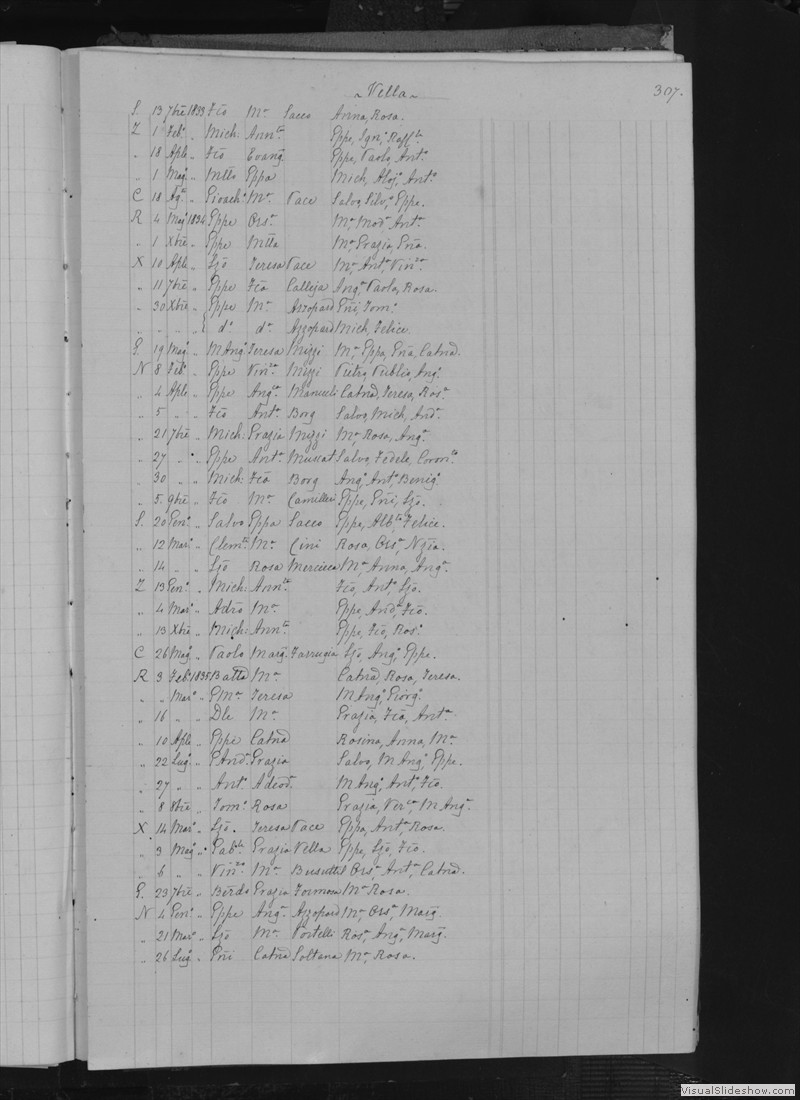 ~ Vella ~ 307.
S. 13 7bre 1833 Fco Ma Sacco Anna, Rosa.
Z 1 Feb° „ Mich: Annta Eppe, Igns, Raffla
„ 18 Aple „ Fco Evang Eppe, Paolo, Ant°
„ 1 Mag° „ Mtto Eppa Mich, Aloj, Ant°
C 18 Ag° „ Gioach° Ma Pace Salvo, Silv, Eppe.
R 4 Mag° 1834 Eppe Orsa Ma, Mod, Anta
„ 1 Xbre „ Eppe Mtta Ma, Grazia, Gna.
X 10 Aple „ Ljo Teresa Pace Ma, Anta, Vinza
„ 11 7bre „ Eppe Fca Calleja Anga, Paolo, Rosa.
„ 30 Xbre „ Eppe Ma Azzopard Gni, Tom°
„ „ „ „ { d° da Azzopard Mich, Felice.
G. 19 Mag° „ M Ang° Teresa Mizzi Ma, Eppa, Gna, Catna.
N 8 Feb° „ Eppe Vinza Mizzi Pietro, Publio, Ang°
„ 4 Aple „ Eppe Anga Manueli Catna, Teresa, Rosa
„ 5 „ „ Fco Anta Borg Salvo, Mich, And.
„ 21 7bre „ Mich: Grazia Mizzi Ma, Rosa, Anga
„ 27 „ „ Eppe Anta Muscat Salvo, Fedele,
„ 30 „ „ Mich: Fca Borg Ang, Ant, Benig°
„ 5 9bre „ Fco Ma Camilleri Eppe, Gni, Ljo.
S. 20 Gen° „ Salvo Eppa Sacco Eppe, Albto, Felice.
„ 12 Mar° „ Clemte Ma Cini Rosa, Orsa, Nzia.
„ 14 „ „ Ljo Rosa Mercieca Ma, Anna, Anga
Z 13 Gen° „ Mich: Annta Fco, Ant, Ljo.
„ 4 Mar° „ Adro Ma Eppe, And, Fco.
„ 13 Xbre „ Mich: Annta Eppe, Fco, Ros°
C 26 Mag° „ Paolo Marg Farrugia Ljo, Ang, Eppe.
R 3 Feb° 1835 Batta Ma Catna, Rosa, Teresa.
„ „ Mar° „ GMa Teresa M Ang, Giorg°
„ 16 „ „ Dle Ma Grazia, Fca, Anta
„ 10 Aple „ Eppe Catna Rosina, Anna, Ma
„ 22 Lug° „ PAnd Grazia Salvo, M Ang, Eppe.
„ 27 „ „ Ant° Adeod M Ang, Ant, Fco.
„ 8 8bre „ Tom° Rosa Grazia, Verca, M Anga
X 14 Mar° „ Ljo. Teresa Pace Eppa, Anta, Rosa.
„ 3 Mag° „ Gable Grazia Vella Eppe, Ljo, Fco.
„ 6 „ „ Vinzo Ma Busuttil Orsa, Anta, Catna.
G. 23 7bre „ Berdo Grazia Formosa Ma, Rosa.
N 4 Gen° „ Eppe Anga Azzopard Ma, Orsa, Marg.
„ 21 Mar° „ Ljo Ma Portelli Rosa, Anga, Marg.
„ 26 Lug° „ Gni Catna Soltana Ma, Rosa.
VisualSlideshow.com